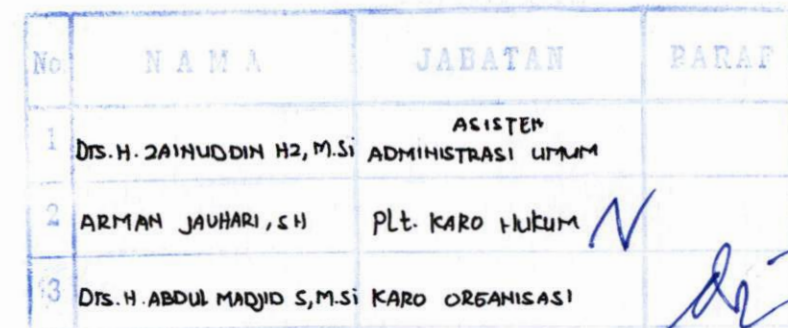 No. NAMA JABATAN PARAF
1 Drs. H. ZAINUDDIN HZ, M.Si ASISTEN
ADMINISTRASI UMUM
2 ARMAN JAUHARI, SH Plt. KARO HUKUM
3 Drs. H. ABDUL MADJID S, M.Si KARO ORGANISASI